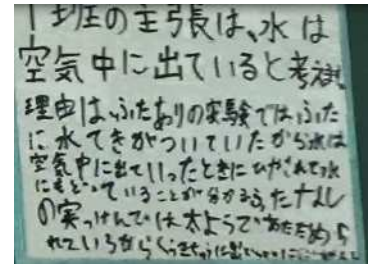 1班の主張は、水は
空気中に出ていると考え
理由は、ふたありの実験では、ふた
に水てきがついていたから水は
空気中に出ていったときにひやされて水
にもどっていることが分かる。ふたなし
の実っけんでは太ようであたためら
れているから